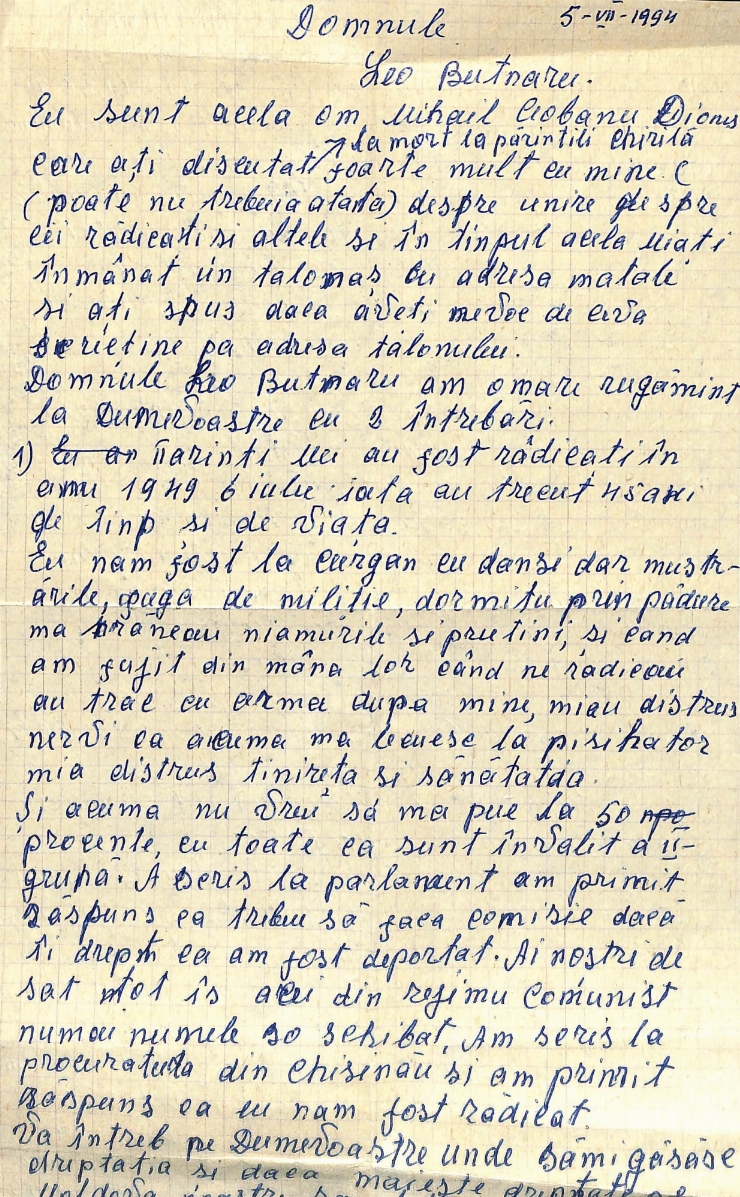 5-VII-1994
Domnule
Leo Butnaru.
Eu sunt acela om Mihail Ciobanu Dionis
la mort la părintili Chirilă
care ați discutat foarte mult cu mine (
(poate nu trebuia atata) despre unire despre
cei rădicati si altele si în tinpul acela miati
înmânat un talonaș cu adresa matale
si ati spus daca aveti nevoe de ceva
scrietine pa adresa talonului.
Domnule Leo Butnaru am omare rugămint
la Dumevoastre cu 2 întrebări.
1) Eu an Părinti mei au fost rădicati în
anu 1949 6 iulie iata au trecut 45 ani
de tinp si de viata.
Eu nam fost la Curgan cu dansi dar mustr-
ările, fuga de militie, dormitu prin pădure
ma hrăneau niamurile si prutini, si cand
am fujit din mâna lor când ne rădicau
au trac cu arma dupa mine, miau distrus
nervi ca acuma ma lecuesc la pisihator
mia distrus tinireta si sănătatăa.
Și acuma nu vreu să ma pue la 50 npo
procente, cu toate ca sunt învalit a II-
grupă. A scris la parlament am primit
răspuns ca trebue să faca comisie dacă
îi drept ca am fost deportat. Ai nostri de
sat tot îs acei din rejimu comunist
numai numele so schibat. Am scris la
procuratura din Chisinău si am primit
răspuns ca eu nam fost rădicat.
Va întreb pe Dumevoastre unde sămi găsăsc
dreptatia si daca maieste dreptati pe
Moldova noastra